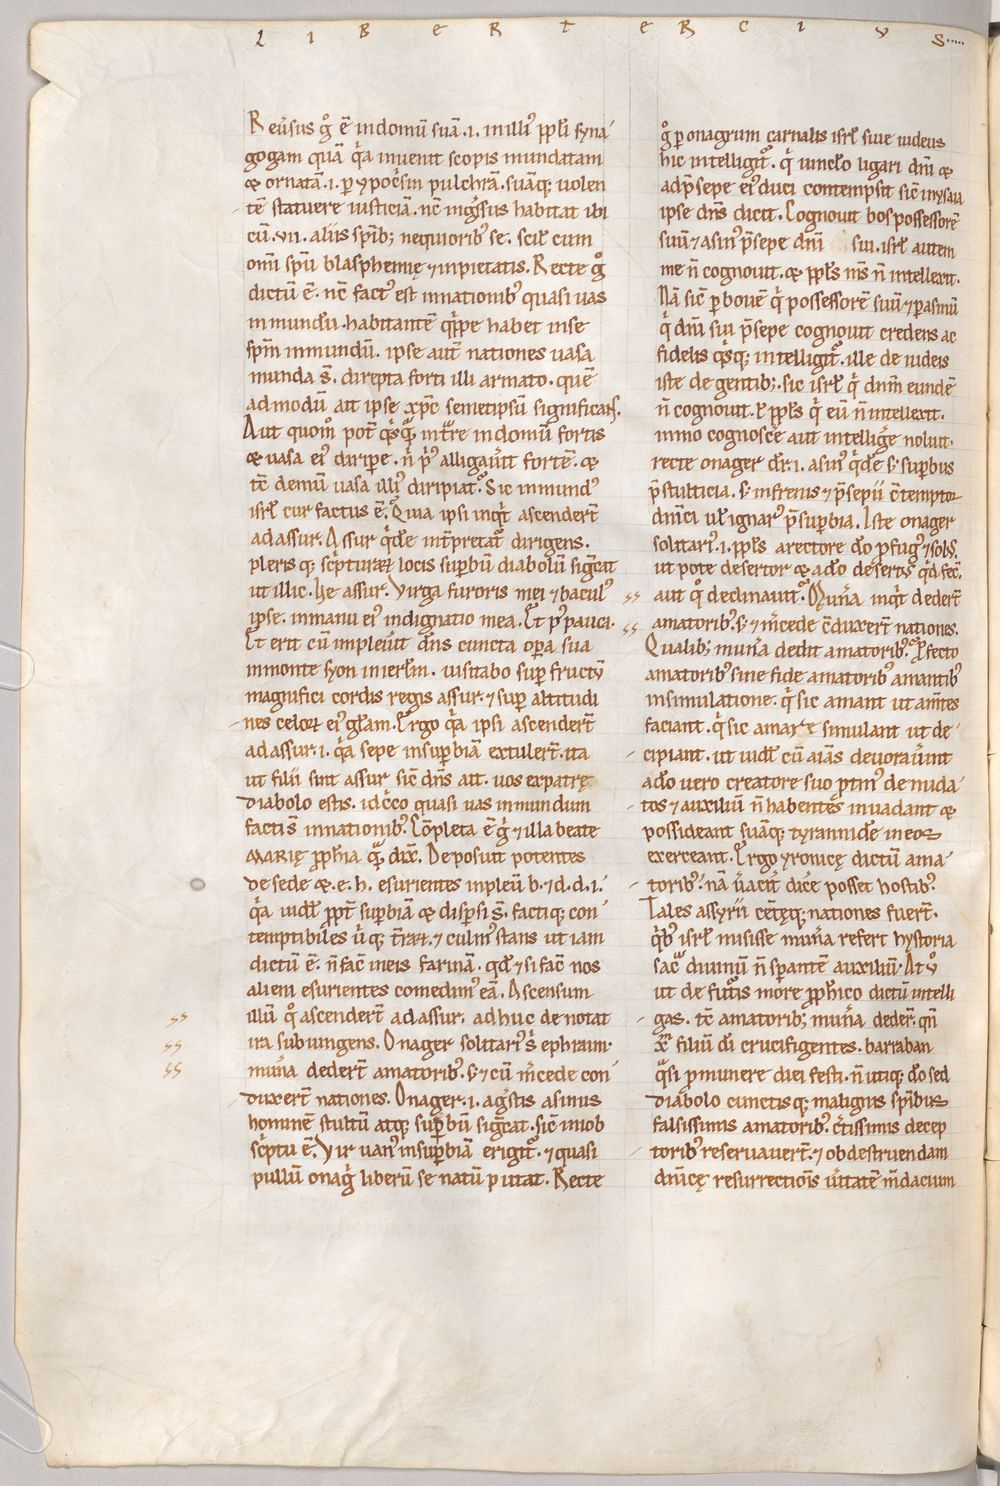 LIBER TERCIVS.....
Reũsus g̊ ẽ in domũ suã .i. in illi᷒ ppl̃i syna
gogam quã q̃a inuenit scopis mundatam
& ornatã .i. p ypoc̃sin pulchrã. suãq; uolen
tẽ statuere iusticiã. nẽc ing̃ssus habitat ibi
cũ .vii. aliis spĩb; nequiorib᷒ se. scil̃ cum
om̃i spũ blasphemię ⁊ inpietatis. Recte g̊
dictũ ẽ. nc̃ fact᷒ est in nationib᷒ quasi uas
inmundũ. habitantẽ q̃ppe habet in se
sp̃m inmundũ. ipse aut̃ nationes uasa
munda s̃. direpta forti illi armato. quẽ
admodũ ait ipse xp̃c semetipsũ significans.
Aut quom̊ pot̃ q̃sq̃ intrare in domũ fortis
& uasa ei᷒ diripe. ñ p᷒ alligau̾it fortẽ. &
tc̃ demũ uasa illi᷒ diripiat. Sic inmund᷒
isrl̃ cur factus ẽ. Quia ipsi inq̃t ascendert̃
ad assur. Assur q̃de int̃pretat̃ dirigens.
pleris q; sc̃pturaꝝ locis supbũ diabolũ sig̃cat
ut illic. he assur. Virga furoris mei ⁊ bacul᷒
ipse. in manu ei᷒ indignatio mea. Et p᷒ pauci.
Et erit cũ impleu̾it dñs cuncta opa sua
in monte syon in ierl̃m. uisitabo sup fructũ
magnifici cordis regis assur. ⁊ sup altitudi
nes celoꝝ ei᷒ gl̃am. Ergo q̃a ipsi ascendert̃
ad assur .i. q̃a sepe in supbiã extulert̃. ita
ut filii sint assur sic̃ dñs ait. uos ex patre
diabolo estis. idc̃co quasi uas inmundum
facti s̃ in nationib᷒. Cõpleta ẽ g̊ ⁊ illa beate
MARIĘ pph̃ia q̃ dix̃. Deposuit potentes
de sede &.e.h. esurientes inpleũ b. ⁊ d.d.i.
q̃a uidl̃ ppt̃ supbiã & dispsi s̃. factiq; con
temptibiles u̾q; t̃raꝝ. ⁊ culm᷒ stans ut iam
dictũ ẽ. ñ fac̃ in eis farinã. qd̃ ⁊ si fac̃ nos
alieni esurientes comedim᷒ eã. Ascensum
illũ q̊ ascendert̃ ad assur. adhuc denotat
ita subiungens. Onager solitari᷒ s̃ ephraim
mun̾a dedert̃ amatorib᷒. s; ⁊ cũ m̃cede con
duxert̃ nationes. Onager .i. ag̃stis asinus
hominẽ stultũ atq; supbũ sig̃cat. sic̃ in iob
sc̃ptũ ẽ. Vir uan᷒ in supbiã erigit̃. ⁊ quasi
pullũ onag̃ liberũ se natũ putat. Recte
g̊ p onagrum carnalis isrl̃ siue iudeus
hic intelligit̃. q̃ iunc̃lo ligari dñi &
ad p̃sepe ei᷒ duci contempsit sic̃ in ysaia
ipse dñs dicit. Cognouit bos possessorẽ
suũ ⁊ asin᷒ p̃sepe dñi sui. isrl̃ autem
me ñ cognouit. & ppl̃s m̃s ñ intellexit.
Nã sic̃ p bouẽ q̃ possessorẽ suũ ⁊ p asinũ
q̃ dñi sui p̃sepe cognouit credens ac
fidelis q̃sq; intelligit̃. ille de iudeis
iste de gentib;. sic isrl̃ q̃ dnm̃ eundẽ
ñ cognouit. ł ppl̃s q̃ eũ ñ intellexit.
immo cognosc̃e aut intellig̃e noluit.
recte onager dr̃ .i. asin᷒ q̃de s; supbus
p̃ stulticia. s; infrenis ⁊ p̃sepii c̃temptor
dñici ul̃ ignar᷒ p̃ supbia. Iste onager
solitari᷒ .i. ppl̃s a rectore do profug᷒ ⁊ sol᷒.
ut pote desertor & a do desert᷒ qd̃ fec̃.
aut q̊ declinauit. Mun̾a inq̃t dedert̃
amatorib᷒. s; ⁊ m̃cede c̃duxert̃ nationes.
Qualib; mun̾a dedit amatorib᷒. Profecto
amatorib᷒ sine fide amatorib᷒ amantib᷒
in simulatione. q̃ sic amant ut am̃tes
faciant. q̃ sic amare simulant ut de
cipiant. ut uidl̃ cũ aĩas deuorau̾int
a do uero creatore suo ptin᷒ denuda
tos ⁊ auxiliũ ñ habentes inuadant &
possideant suãq; tyrannidẽ in eos
exerceant. Ergo yronicę dictũ ama
torib᷒. nã u̾aci̾t dic̃e posset hostib᷒.
Tales assyrii cet̃ęq; nationes fuert̃.
q̃b᷒ isrl̃ misisse mun̾a refert hystoria
sac̃ diuinũ ñ spantẽ auxiliũ. At ů
ut de futuris more pph̃ico dictũ intelli
gas. tc̃ amatorib; mun̾a deder̃. qñ
xp̃m filiũ di crucifigentes. barraban
q̃si p munere diei festi. ñ utiq; do sed
diabolo cunctisq; malignis spĩbus
falsissimis amatorib᷒. c̃tissimis decep
torib᷒ reseruauert̃. ⁊ ob destruendam
dñicę resurrectiõis u̾itatẽ m̃dacium